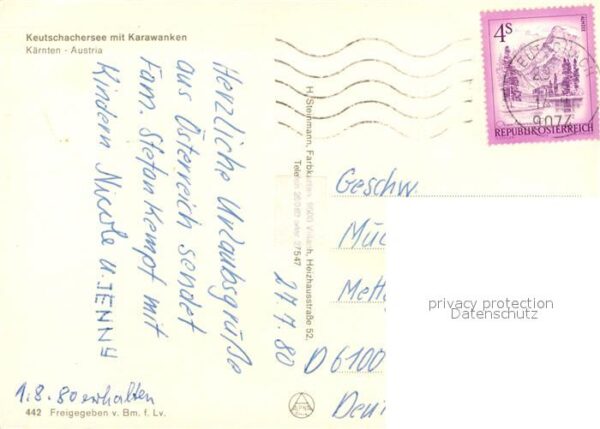 Keutschachersee mit Karawanken
Kärnten - Austria
Herzliche Urlaubsgrüße
aus Österreich sendet
Fam. Stefan Kempf mit
Kindern Nicole u. JENNY
27.7.80
1.8.80 erhalten
442 Freigegeben v. Bm. f. Lv.
H. Steinmann, Farbkarten, 9500 Villach, Heizhausstraße 52,
Telefon 37547
4S
REPUBLIK ÖSTERREICH
9074
Geschw.
Mü
Mett
D 6100
Deu
privacy protection
Datenschutz